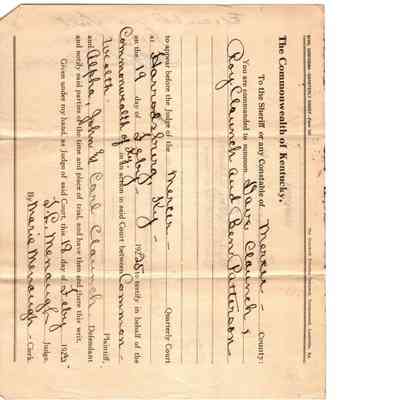 The Commonwealth of Kentucky,
To the Sheriff or any Constable of Mercer County:
You are commanded to summon Dave Claunch,
Roy Claunch and Ben Patterson
to appear before the Judge of the Mercer Quarterly Court
at Harrodsburg, Ky
on the 19 day of Feby 1925 to testify in behalf of the
Commonwealth of Ky. in an action in said Court between Common-
wealth Plaintiff,
and Alpha, John & Carl Claunch Defendant
and notify said parties of the time and place of trial, and have them and there this writ.
Given under my hand, as Judge of said Court, this 19 day of Feby 1925
Menaugh, Judge.
By Marie Menaugh Clerk.